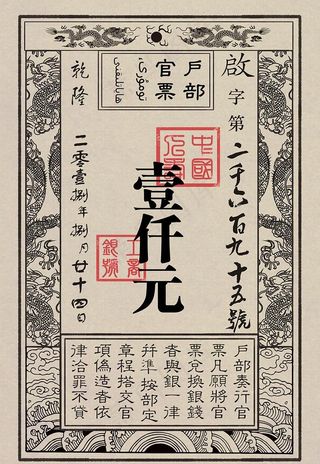 啟字第二千六百九十五號
戶部
官票
乾隆
二零壹捌年捌月廿十四日
中國
壹仟元
工商
銀號
戶部奏行官
票凡願將官
票兌換銀錢
者與銀一律
并準按部定
章程搭交官
項偽造者依
律治罪不貸